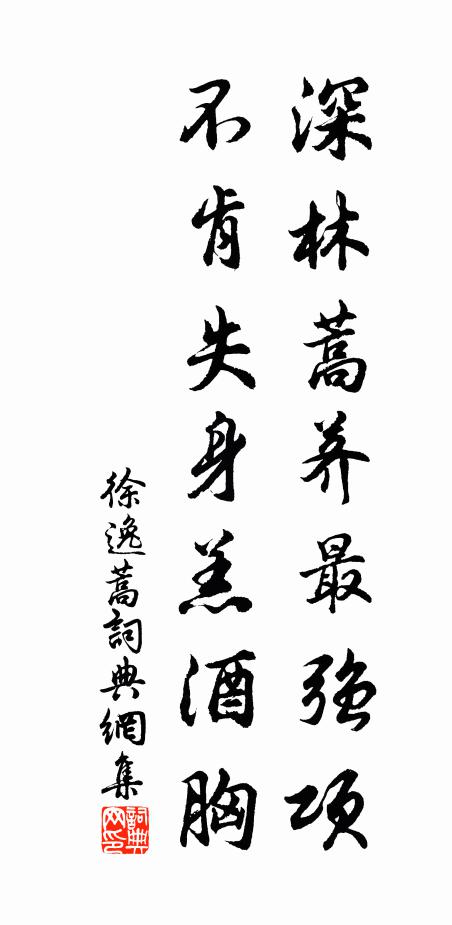 深林蒿养最強项
不肯失身羔酒胸
徐逸蒿詞典網集
詞典网印